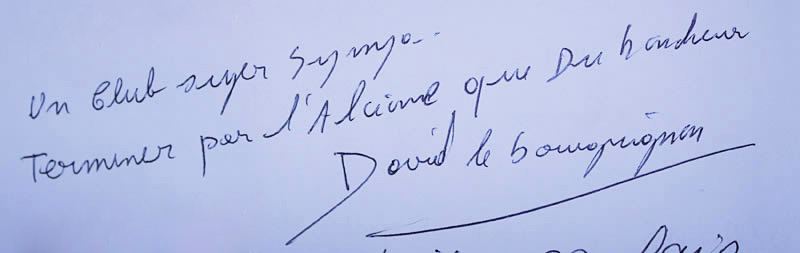 Un Club super Sympa..
Terminer par l'Alcione que Du bonheur
David le bourguignon